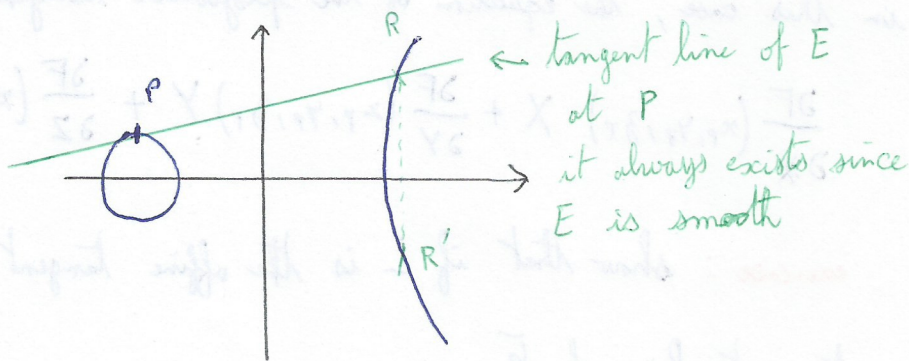 R
← tangent line of E
P
at P
it always exists since
E is smooth
R'